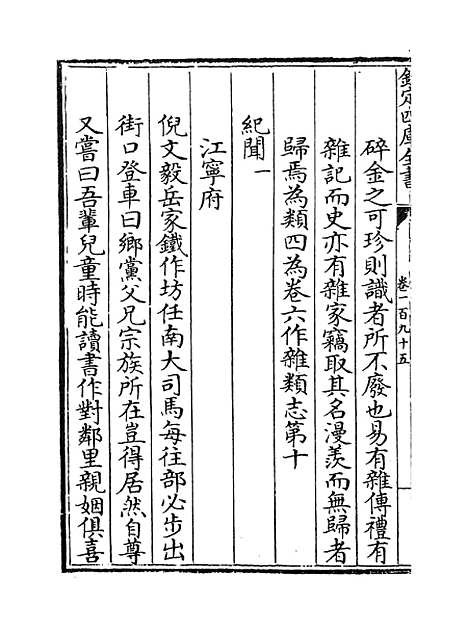 欽定四庫全書
卷一百九十五
碎金之可珍則識者所不廢也易有雜傳禮有
雜記而史亦有雜家竊取其名漫羨而無歸者
歸焉為類四為卷六作雜類志第十
紀聞一
江寧府
倪文毅岳家鐵作坊任南大司馬每往部必步出
街口登車曰鄉黨父兄宗族所在豈得居然自尊
又嘗曰吾輩兒童時能讀書作對鄰里親姻俱喜